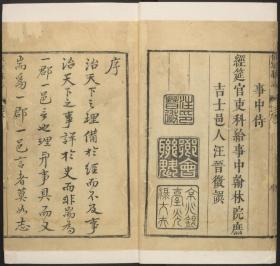 事中侍
經筵官吏科給事中翰林院庶
吉士邑人汪晉徵譔
鄉會聯魁
序
治天下之理備於經而不及事
治天下之事詳於史而非耑為
一郡一邑言也理與事具而又
耑為一郡一邑言者莫如志